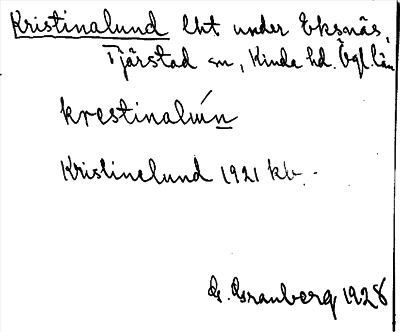 Kristinalund lht under Eksnäs,
Tjärstad sn, Kinda hd. Ögl. län
krestinalún
Kristinelund 1921 kb.
G. Granberg 1928